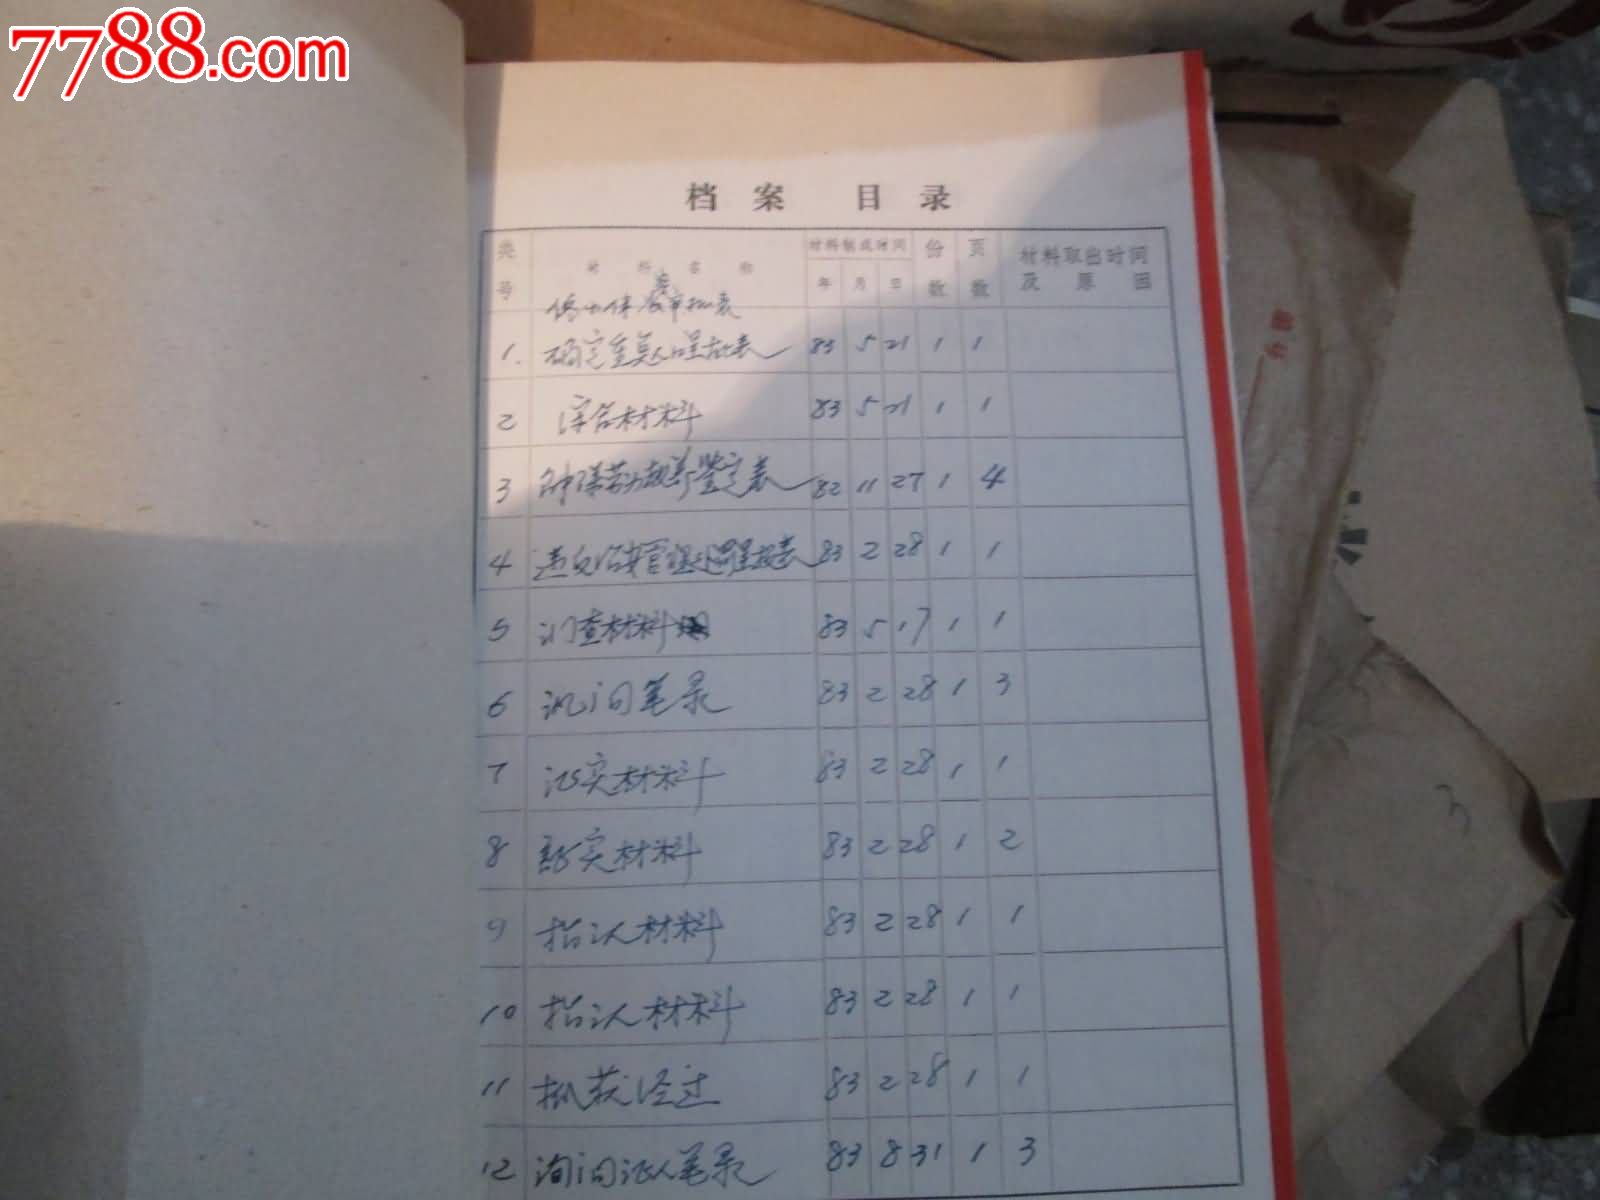 7788.com
档 案 目 录
类号 材料名称 材料制成时间 年 月 日 份数 页数 材料取出时间及原因
审批表
1. 确定重 呈批表 83 5 21 1 1
2 综合材料 83 5 21 1 1
3 劳动教养鉴定表 82 11 27 1 4
4 违反治安管理处罚呈报表 83 2 28 1 1
5 调查材料 83 5 17 1 1
6 讯问笔录 83 2 28 1 3
7 证实材料 83 2 28 1 1
8 证实材料 83 2 28 1 2
9 指认材料 83 2 28 1 1
10 指认材料 83 2 28 1 1
11 抓获经过 83 2 28 1 1
12 询问证人笔录 83 8 31 1 3
3